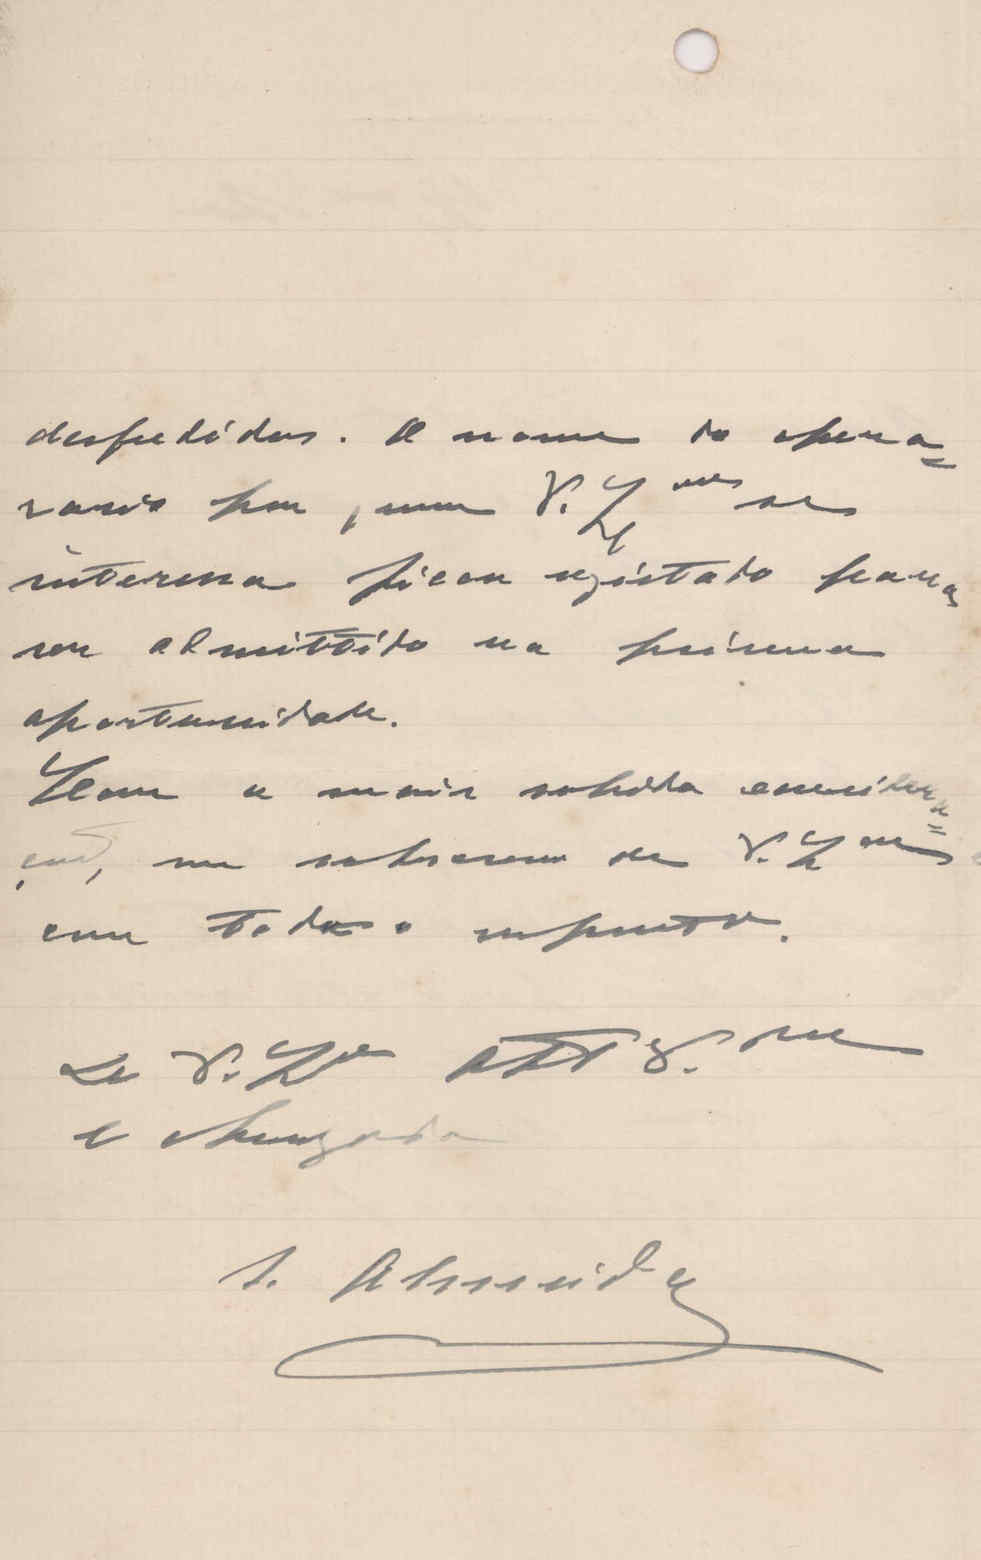 despedidos. O nome do opera=
rario por quem V. Ex.mas se
interessa ficou registado para
ser admittido na primeira
oportunidade.
Com a mais subida considera=
ção, me subscrevo de V. Ex.mas
com todo o respeito.
De V. Ex.as Att.o V.or
e obrigado
J. Almeida